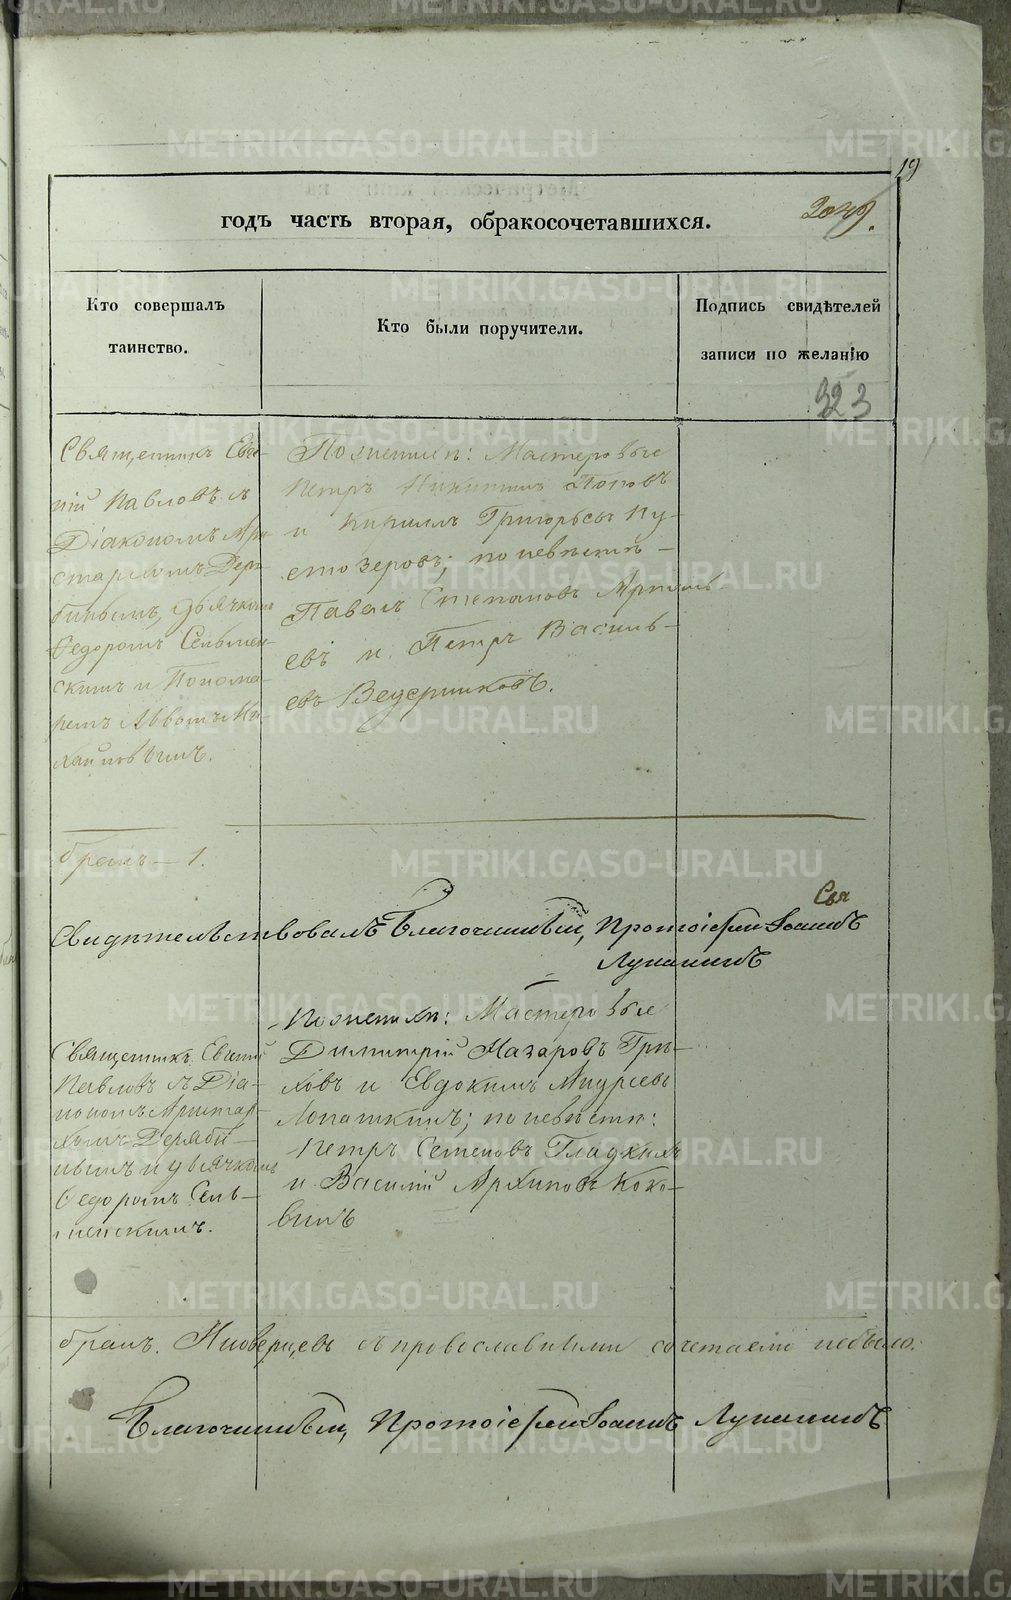 19
годъ часть вторая, обракосочетавшихся.
Кто совершалъ
таинство.
Кто были поручители.
Подпись свидѣтелей
записи по желанію
323
Священникъ Евге-
ній Павловъ съ
Діакономъ Ари-
стархомъ Деря-
бинымъ, дьячкомъ
Ѳедоромъ Сельмен-
скимъ и Понома-
ремъ Львомъ Ми-
хайловымъ.
По женихѣ: Мастеровые
Петръ Никитинъ Поповъ
и Кириллъ Григорьевъ Пу-
стозеровъ; по невѣстѣ –
Павелъ Степановъ Артемь-
евъ и Петръ Василь-
евъ Ведерниковъ.
бракъ – 1.
Свя
Свидѣтельствовалъ Благочинный, Протоіерей Іоаннъ
Лукинъ
Священникъ Евгеній
Павловъ съ Діа-
кономъ Аристар-
хомъ Деряби-
нымъ и дьячкомъ
Ѳедоромъ Сель-
менскимъ.
По женихѣ: Мастеровые
Димитрій Назаровъ Грѣ-
ховъ и Евдокимъ Андреевъ
Лопаткинъ; по невѣстѣ:
Петръ Семеновъ Гладкихъ
и Василій Архиповъ Коко-
винъ
бракъ. Иновѣрцевъ съ православными сочетаній небыло.
Благочинный, Протоіерей Іоаннъ
METRIKI.GASO-URAL.RU